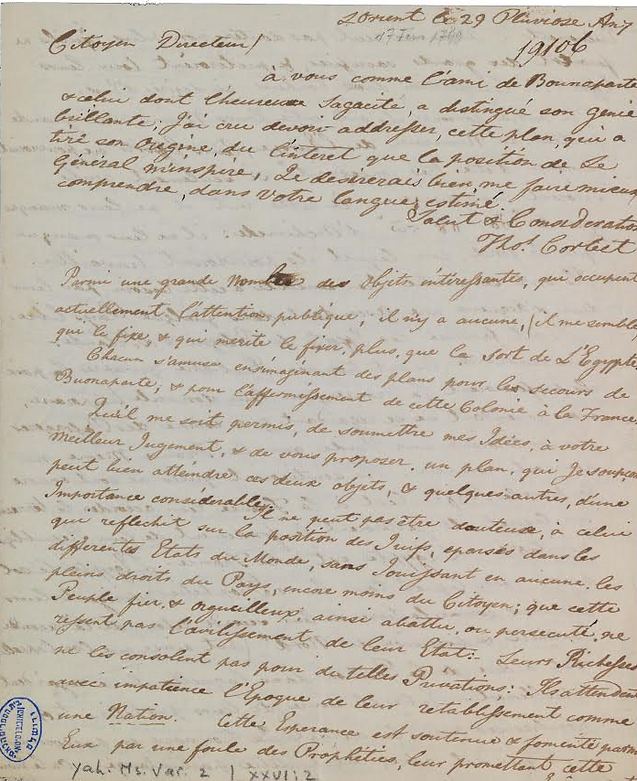 Lorient le 29 Pluviose An 7
17 Fev 1799
Citoyen Directeur/
19106
à vous comme l'ami de Bounaparte
& celui dont l'heureuse Sagacite, a distingué son genie
brillante; J'ai cru devoir addresser, cette plan, qui a
tiré son Origine, du l'interet que la position de Le
Général m'inspire, Je desirerais bien, me faire mieux
comprendre, dans votre langue estimé.
Salut & Consideration
Thos. Corbet
Parmi une grande nombre des Objets intéressantes, qui occupent
actuellement l'attention publique, il n'y a aucune, /il me semble/
qui le fixe, & qui merite le fixer, plus, que la Sort de L'Egypte
Chacun s'amuse en imaginant des plans pour les secours de
Buonaparte, & pour l'affermissement de cette Colonie à la France,
Qu'il me soit permis, de soumettre mes Idées, à votre
meilleur Jugement, & de vous proposer, un plan, qui Je
peut bien attéindre ces deux objets, & quelques autres, d'une
Importance considérable.
Il ne peut pas être douteuse, à celui
qui reflechit sur la position des Juifs, eparsés dans les
differentes Etats du Monde, sans Jouissant en aucune, les
pleins droits du Pays, encore moins du Citoyen; que cette
Peuple fier, & orgueilleux, ainsi abattu, ou persecuté, ne
ressent pas l'avilissement, de leur Etat: Leurs Richesses
ne les consolent pas pour du telles Privations: Ils attendent
avec impatience l'Epoque de leur retablissement comme
une Nation. Cette Esperance est soutenue & fomenté parmi
Eux par une foule des Prophéties, leur promettant cette
Yah. Ms. Var. 2 / XXVI:2